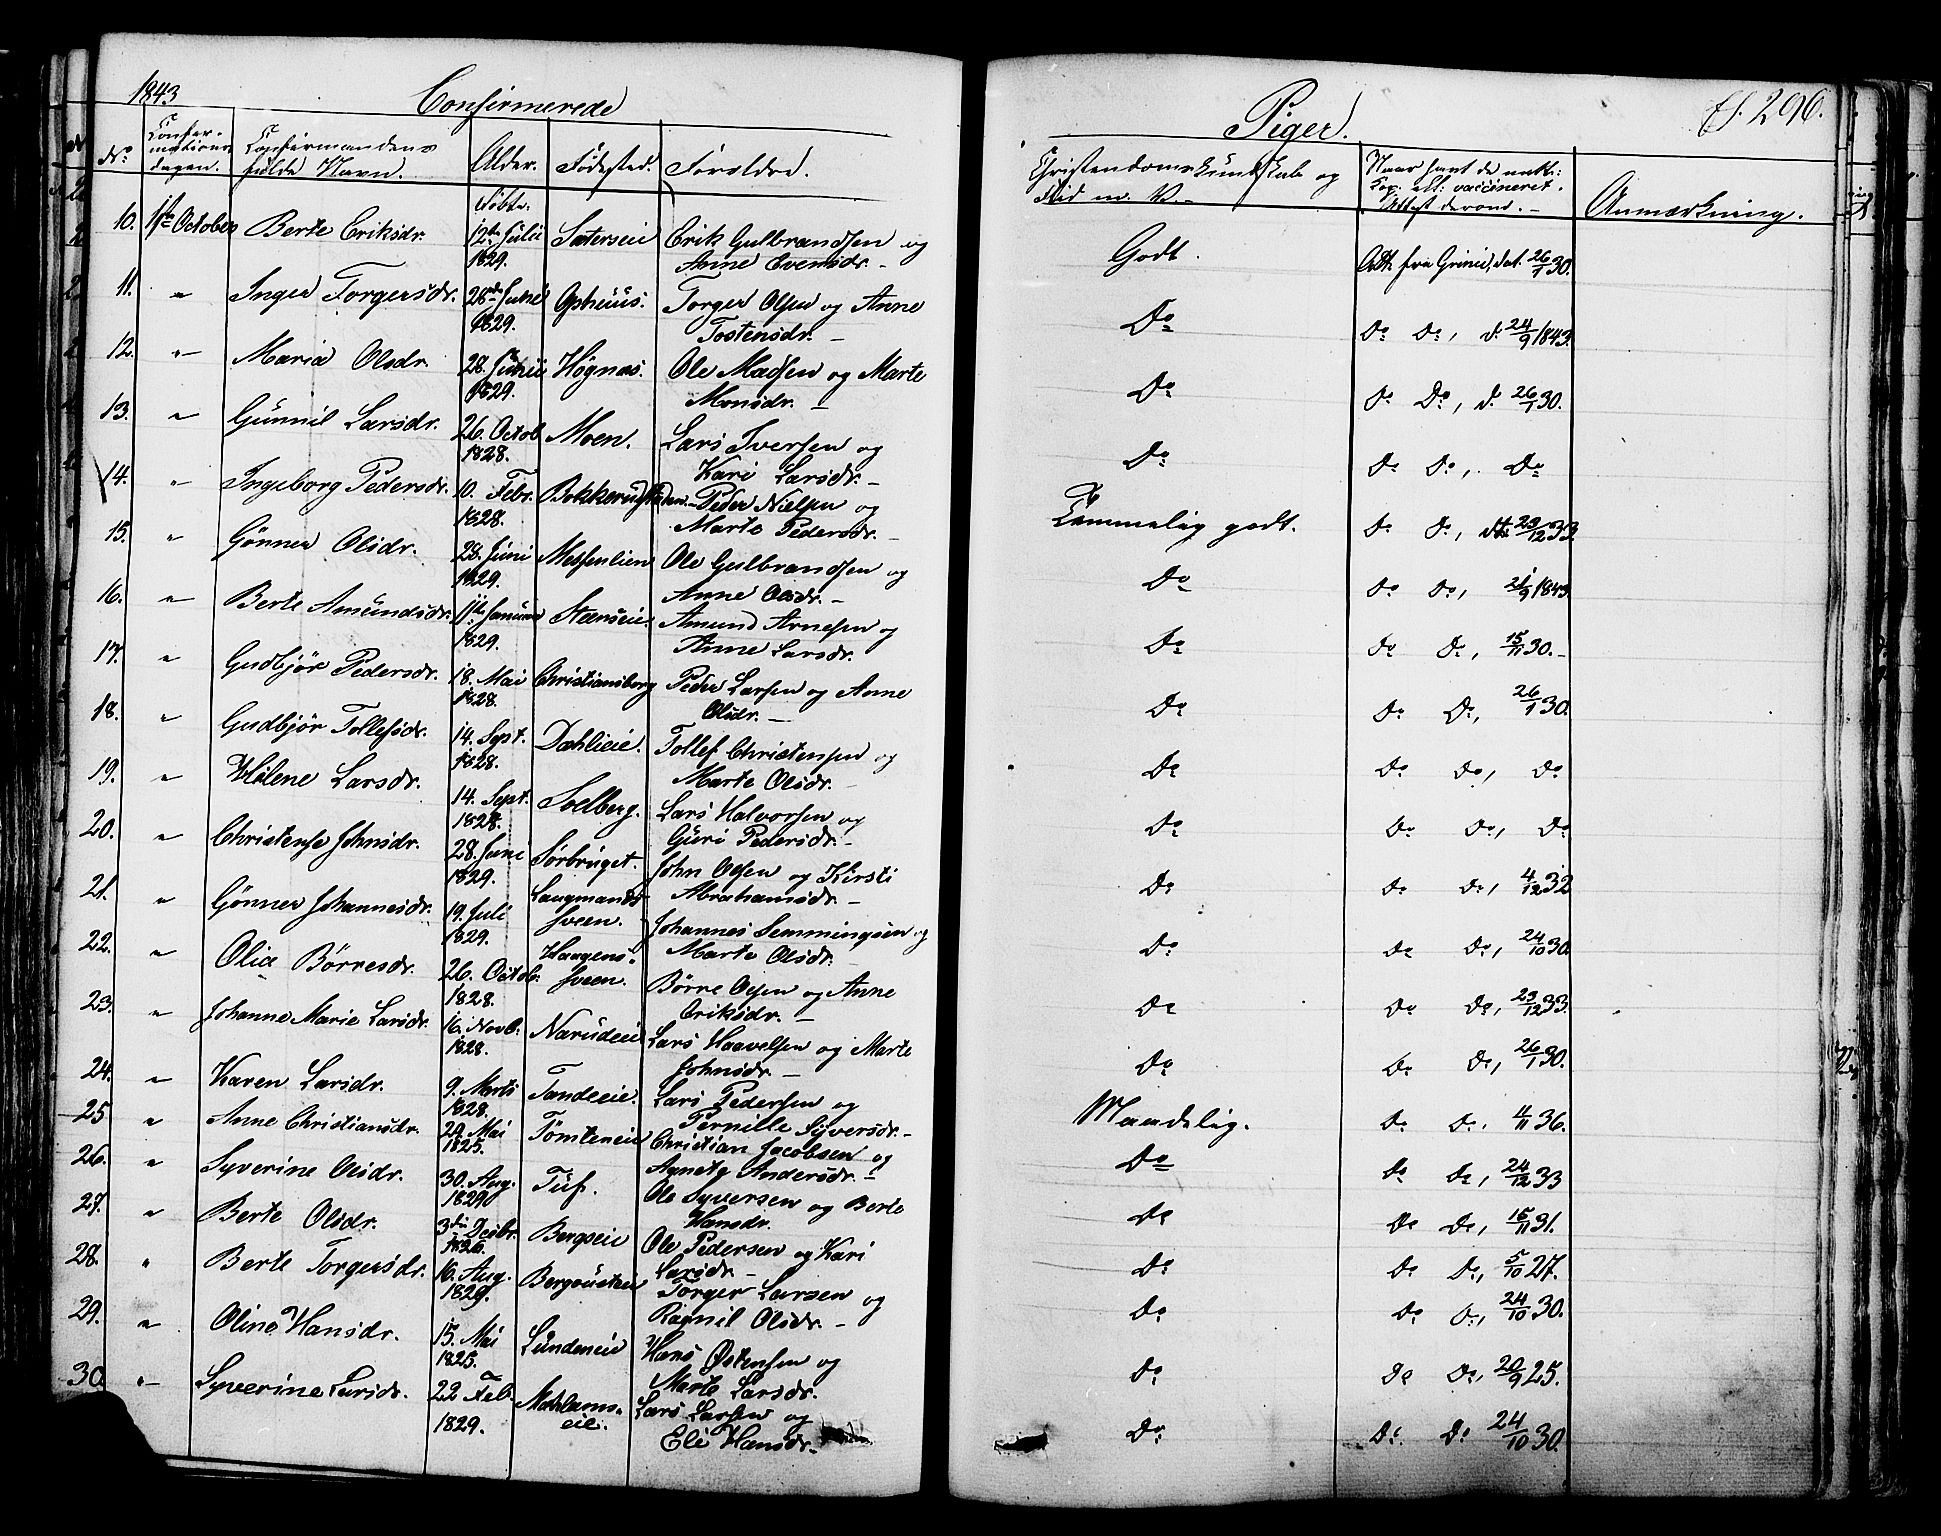 1843 Confirmerede
No. Confirmationsdagen. Confirmandens fulde Navn. Alder. Fødested. Forældre.
Døbte.
10. 1ste October Berte Eriksdr. 12te Julii Sæterseie Erik Gulbrandsen og
1829. Anne Evensdr. –
11. " Inger Torgersdr. 28de Juni Opshuus. Torger Olsen og Anne
1829. Tostensdr. –
12. " Maria Olsdr. 28. Junii Høgnæs. Ole Madsen og Marte
1829. Monsdr. –
13. " Gunnil Larsdr. 26. Octob. Moen. Lars Iversen og
1828. Kari Larsdr. –
14. " Ingeborg Pedersdr. 10. Febr. Peder Nielsen og
1828. Marte Pedersdr. –
15. " Gønner Olsdr. 28. Juni Messenlien Ole Gulbrandsen og
1829. Anne Olsdr. –
16. " Berte Amundsdr. 1te Januar Stenseie. Amund Arnesen og
1829. Anne Larsdr.
17. " Gudbjør Pedersdr. 18. Mai Christiansborg Peder Larsen og Anne
1828. Olsdr. –
18. " Gudbjør Tollefsdr. 14. Sept. Dahlieie. Tollef Christensen og
1828. Marte Olsdr. –
19. " Helene Larsdr. 14. Sept. Soelberg. Lars Halvorsen og
1828. Guri Pedersdr. –
20. " Christense Johnsdr. 28. Juni Sørbruget. John Olsen og Kirsti
1829. Abrahamsdr. –
21. " Gønner Johannesdr. 19. Juli Langmands- Johannes Semmingsen og
1829. sveen. Marte Olsdr. –
22. " Olia Børresdr. 26. Octob. Haagens- Børre Olsen og Anne
1828. sveen. Eriksdr. –
23. " Johanne Marie Larsdr. 16. Novb. Narudeie Lars Haavelsen og Marte
1828. Johnsdr. –
24. " Karen Larsdr. 9. Marts Tandeeie. Lars Pedersen og
1828. Pernille Syversdr. –
25 " Anne Christiansdr. 29. Mai Tømteneie Christian Jacobsen og
1825. Agnete Andersdr. –
26. " Syverine Olsdr. 30. Aug. Tuf. Ole Syversen og Berte
1829. Hansdr.
27. " Berte Olsdr. 3die Decbr. Bergseie Ole Pedersen og Kari
1826. Larsdr. –
28. " Berte Torgersdr. 16. Aug. Torger Larsen og
1829. Ragnil Olsdr. –
29. " Oline Hansdr. 15. Mai Lundeneie Hans Østensen og
1825. Marte Larsdr.
30. " Syverine Larsdr. 22 Feb. Mohlams- Lars Larsen og
1829. eie. Eli Hansdr. –
Piger. 296.
Christendomskundskab og Flid m. V. – Naar havt de natt: Kop. ell: vaccineret. Attest derom. – Anmærkning.
Godt. Att. fra Grinie, dat. 26/1 30.
Do Do Do, d. 24/9 1843.
Do Do Do, d. 26/1 30.
Do Do Do, Do
Temmelig godt. Do Do, 23/12 33
Do Do Do, 21/9 1843
Do Do Do, 15/11 30. –
Do Do Do, 26/1 30.
Do Do Do, Do
Do Do Do, Do
Do Do Do, 4/12 32
Do Do Do, 24/10 30.
Do Do Do, 23/12 33.
Do Do Do, 26/1 30.
Maadelig. Do Do, 4/11 36.
Do Do Do, 24/12 33
Do Do Do, 15/11 31.
Do Do Do, 5/10 27.
Do Do Do, 24/10 30.
Do Do Do, 20/9 25.
Do Do. Do 24/10 30.